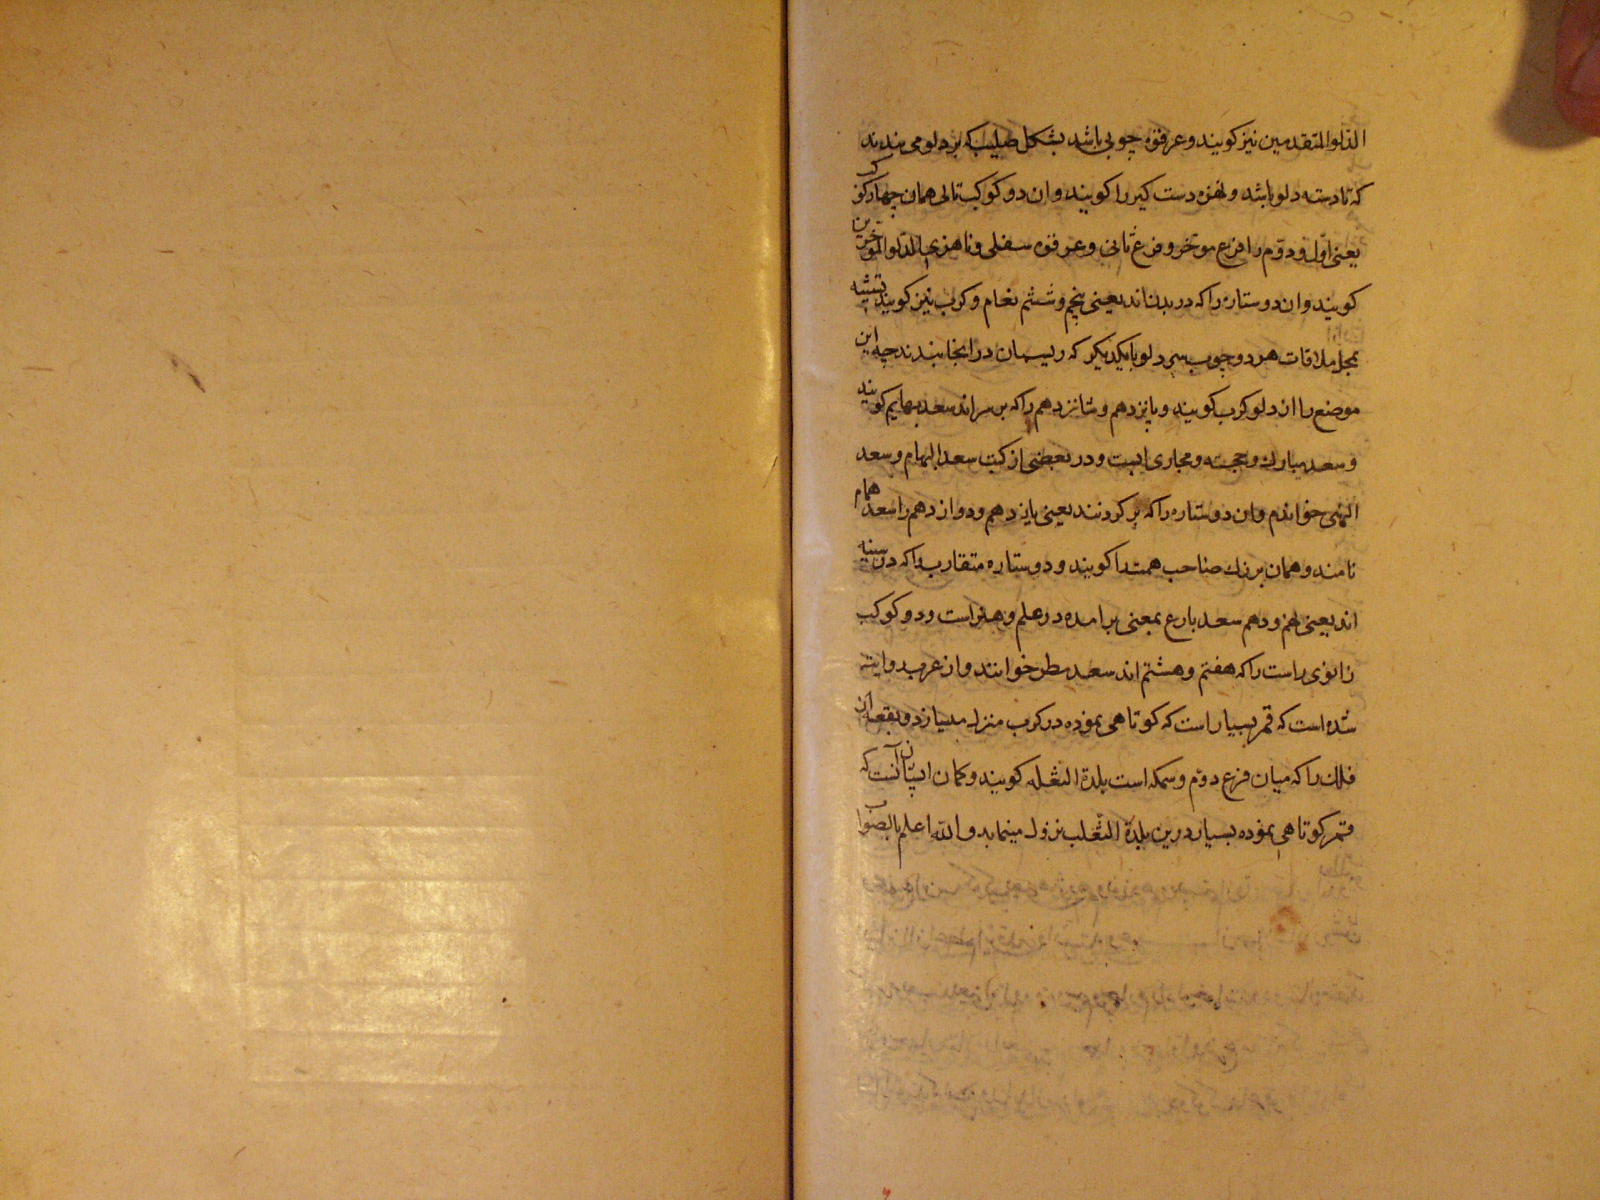 الدّلو المتقدمین نیز کویند و عرقوه چوبی باشد بشکل صلیب که بر دلو می بندند
که تا دسته دلو باشد و لهزه دست کیر را کویند و ان دو کوکب تالی همان چهار کوکب
یعنی اوّل و دوّم را فرع موخر و فرع ثانی و عرقوه سفلی و ناهزی الدّلو المؤخرین
کویند و ان دو ستاره را که در بدنند یعنی پنجم و ششم نعام و کرب نیز کویند بتشبیه
بمحل ملاقات هر دو چوب سر دلو بایکدیکر که ریسمان در انجا بندند چه این
موضع را از دلو کرب کویند و پانزدهم و شانزدهم را که بر سراند سعد بهایم کویند
و سعد مبارك و خجسته و مجاری است و در بعضی از کتب سعد البهام و سعد
النهی خواندم و ان دو ستاره را که بر کردنند یعنی یازدهم و دوازدهم را سعد همام
نامند و همان بزرك صاحب همت را کویند و دو ستاره متقارب را که در سینه
اند یعنی نهم و دهم سعد بارع بمعنی برامده در علم و هنر است و دو کوکب
زانوی راست را که هفتم و هشتم اند سعد مطر خوانند و از عرب روایت
شده است که قمر بسیار است که کوتاهی نموده در کرب منزل میسازد و بقعه از
فلك را که میان فرع دوّم و سمکه است بلدة الثعلب کویند و کمان ایشان آنست که
قمر کوتاهی نموده بسیار درین بلدة الثّعلب نزول مینماید و الله اعلم بالصّواب